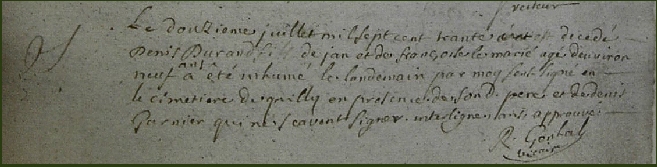 recteur
Le douzieme juillet mil sept cent trante est decedé
Denis Durand fils de jan et de françoise le marié agé denviron
neuf ans a été inhumé le landemain par moy sous signé en
le cimetiere de quilly en presence de son d. pere et de denis
Garnier qui ne scavent signer interligne ans approuvé
R.
vicaire